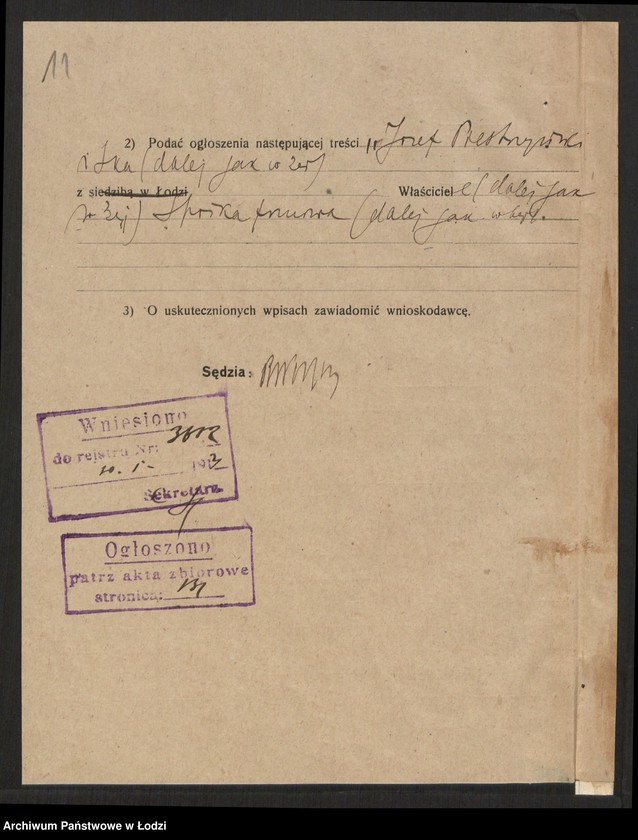 11
2) Podać ogłoszenia następującej treści „Józef
i Ska (dalej jak w
z siedzibą w Łodzi Właściciele (dalej jak
Spółka firmowa (dalej jak
3) O uskutecznionych wpisach zawiadomić wnioskodawcę.
Sędzia:
Wniesiono
do rejstru Nr:
10. I - 192
Sekretarz
Ogłoszono
patrz akta zbiorowe
stronica:
Archiwum Państwowe w Łodzi